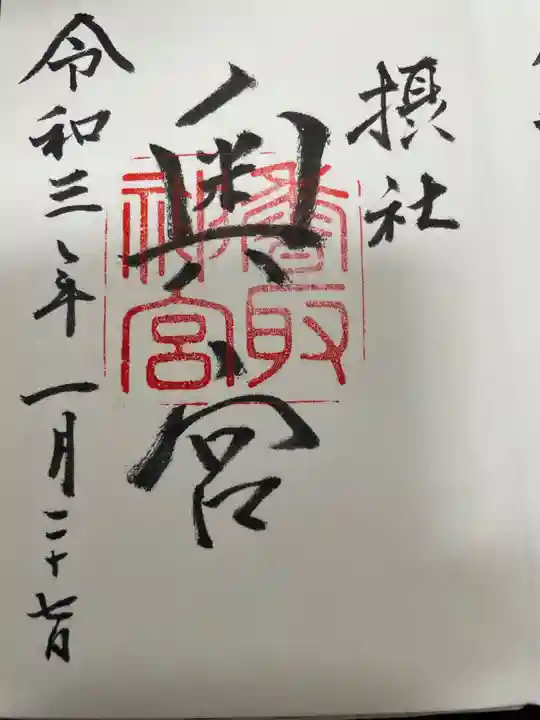 摂社
奥宮
香取
神宮
令和三年一月二十七日